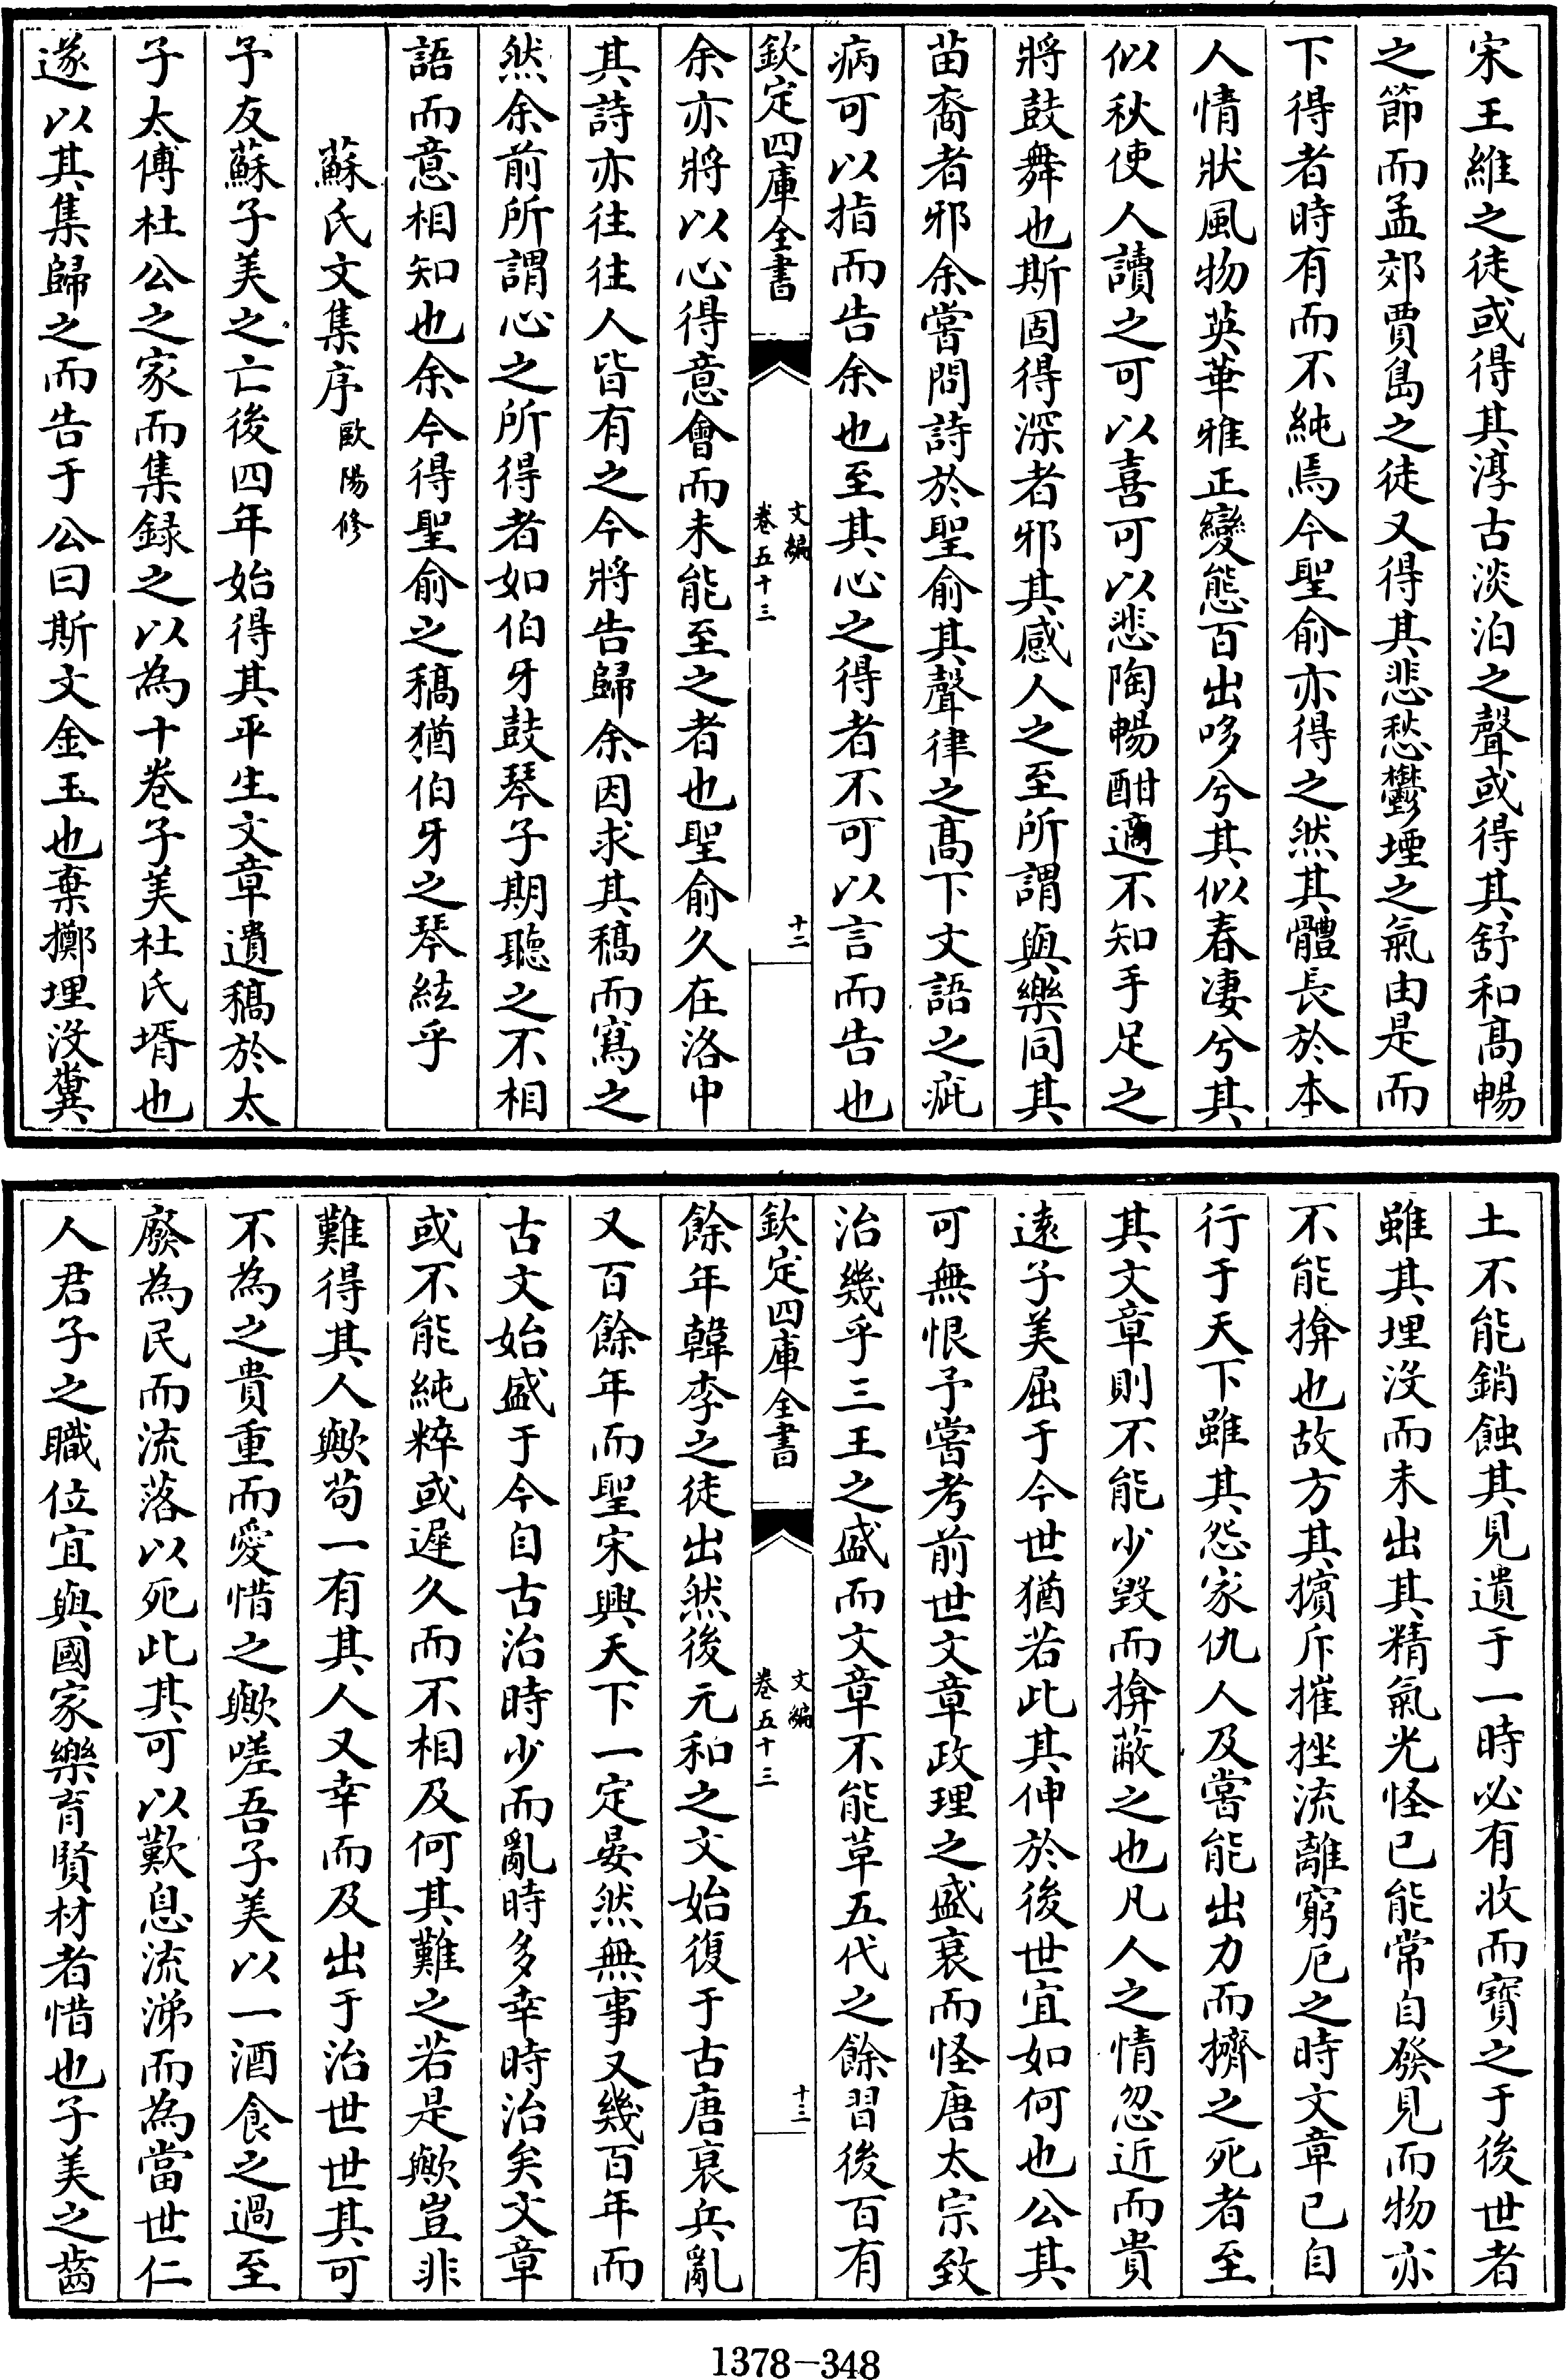 宋王維之徒或得其淳古淡泊之聲或得其舒和高暢
之節而孟郊賈島之徒又得其悲愁鬱堙之氣由是而
下得者時有而不純焉今聖俞亦得之然其體長於本
人情狀風物英華雅正變態百出哆兮其似春凄兮其
似秋使人讀之可以喜可以悲陶暢酣適不知手足之
將鼓舞也斯固得深者邪其感人之至所謂與樂同其
苗裔者邪余嘗問詩於聖俞其聲律之高下文語之疵
病可以指而告余也至其心之得者不可以言而告也
欽定四庫全書
文編
卷五十三
十二
余亦將以心得意會而未能至之者也聖俞久在洛中
其詩亦往往人皆有之今將告歸余因求其稿而寫之
然余前所謂心之所得者如伯牙鼓琴子期聽之不相
語而意相知也余今得聖俞之稿猶伯牙之琴絃乎
蘇氏文集序歐陽修
予友蘇子美之亡後四年始得其平生文章遺稿於太
子太傅杜公之家而集録之以為十巻子美杜氏壻也
遂以其集歸之而告于公曰斯文金玉也棄擲埋没糞
土不能銷蝕其見遺于一時必有收而寶之于後世者
雖其埋没而未出其精氣光怪已能常自發見而物亦
不能揜也故方其擯斥摧挫流離窮厄之時文章已自
行于天下雖其怨家仇人及嘗能出力而擠之死者至
其文章則不能少毀而揜蔽之也凡人之情忽近而貴
遠子美屈于今世猶若此其伸於後世宜如何也公其
可無恨予嘗考前世文章政理之盛衰而怪唐太宗致
治幾乎三王之盛而文章不能革五代之餘習後百有
欽定四庫全書
文編
卷五十三
十三
餘年韓李之徒出然後元和之文始復于古唐衰兵亂
又百餘年而聖宋興天下一定晏然無事又幾百年而
古文始盛于今自古治時少而亂時多幸時治矣文章
或不能純粹或遲久而不相及何其難之若是歟豈非
難得其人歟苟一有其人又幸而及出于治世世其可
不為之貴重而愛惜之歟嗟吾子美以一酒食之過至
廢為民而流落以死此其可以歎息流涕而為當世仁
人君子之職位宜與國家樂育賢材者惜也子美之齒
1378-348